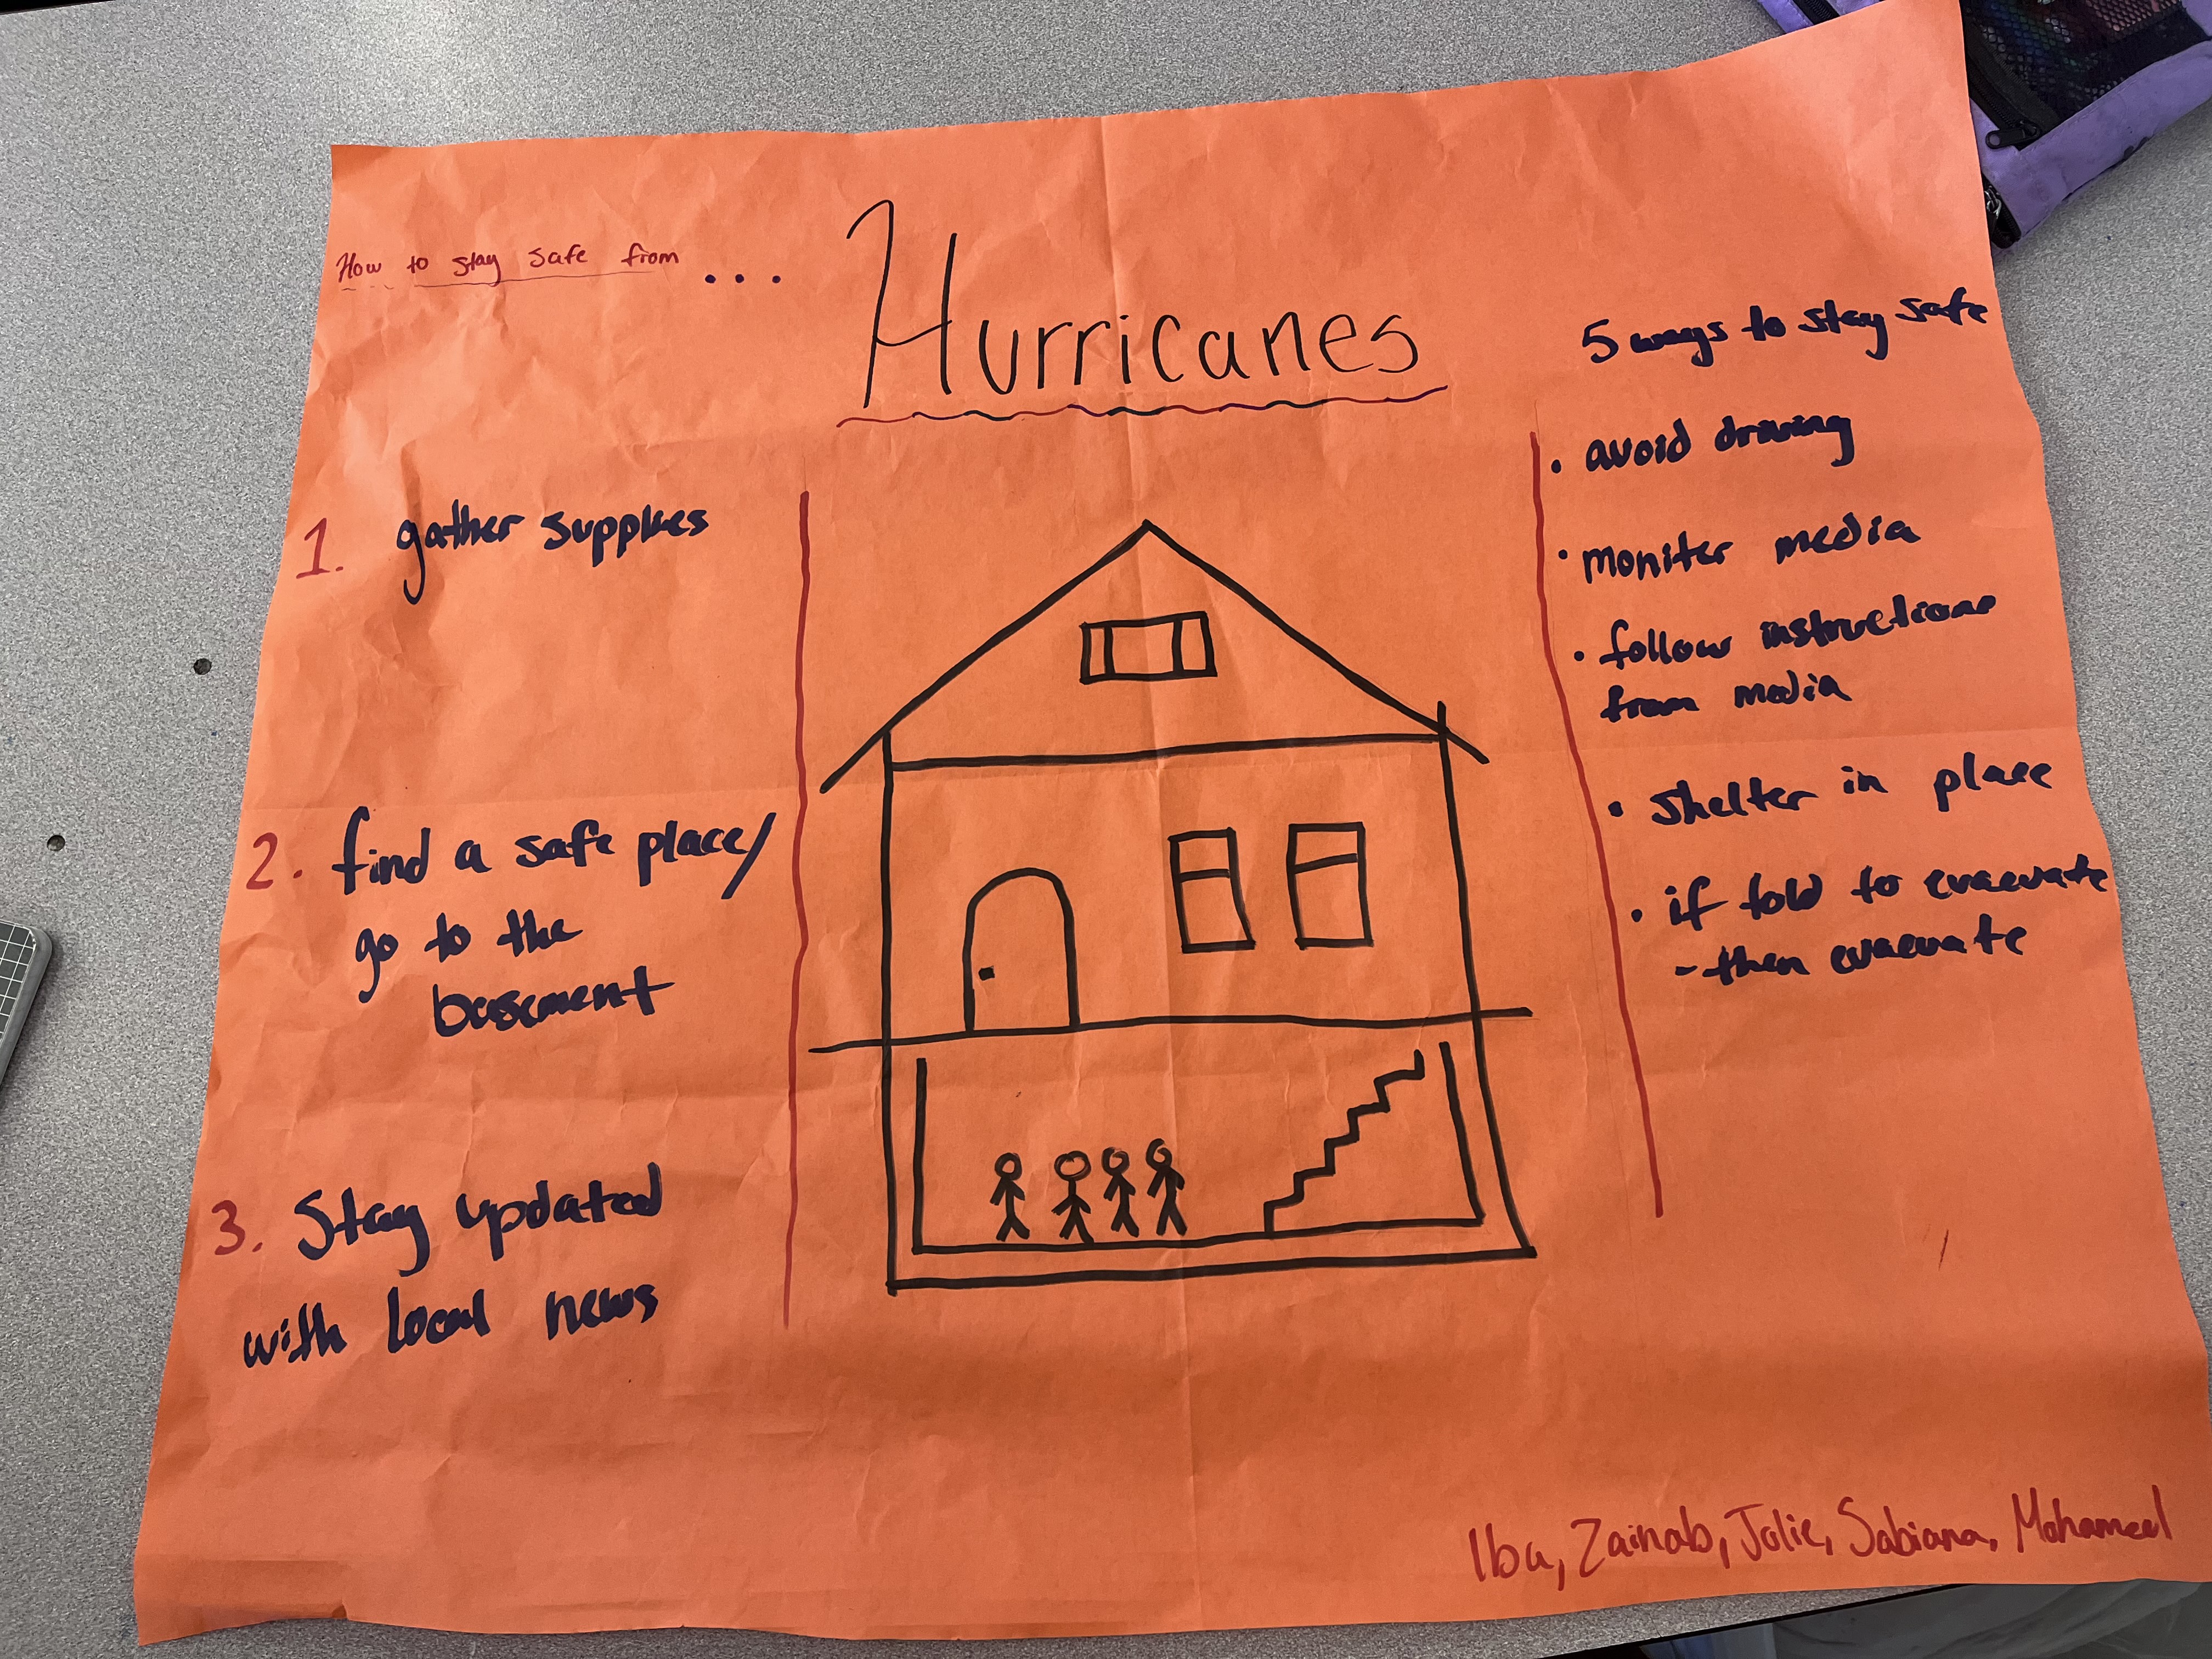 How to stay safe from ...
Hurricanes
1. gather supplies
2. find a safe place/
go to the
basement
3. Stay updated
with local news
5 ways to stay safe
• avoid driving
• moniter media
• follow instructions
from media
• shelter in place
• if told to evacuate
- then evacuate
Iba, Zainab, Jolie, Sabiana, Mohamed